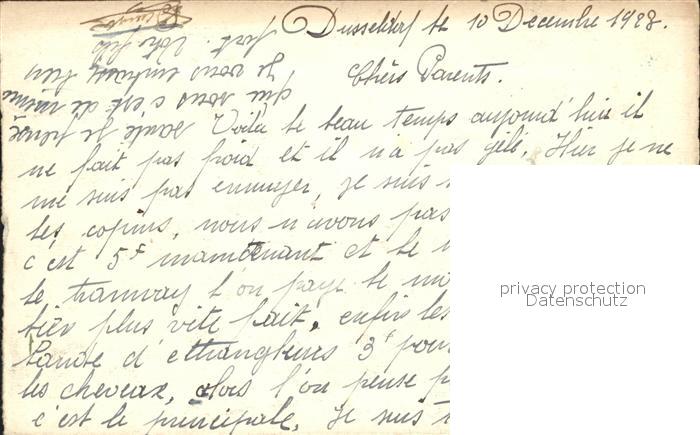 Dusseldorf le 10 Decembre 1923.
Chèrs Parents.
Voila le beau temps aujourd'hui il
ne fait pas froid et il n'a pas gêlé. Hier je ne
me suis pas ennuyer, je suis
les copins, nous n'avons pas
c'est 5f maintenant et le
le tramway l'on paye le
bien plus vite fait, enfin les
bande d'ettrangleurs 3f pour
les cheveax, alors l'on pense
c'est le principale. Je suis
santé je pense
que vous c'est de même
Je vous embrasse bien
fort. Votre fils
privacy protection
Datenschutz